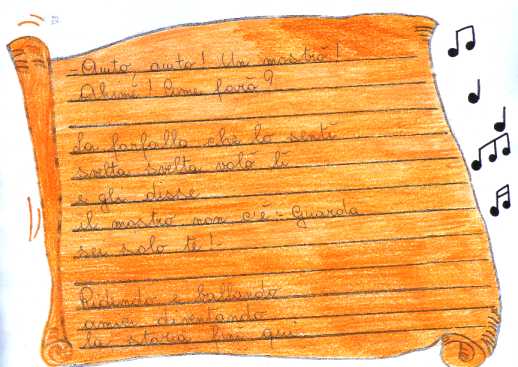 - Aiuto, aiuto! Un mostro!
Ahimè! Come farò?
La farfalla che lo sentì
svelta svelta volò lì
e gli disse
il mostro non c'è - Guarda
sei solo te!
Ridendo e ballando
amici diventando
la storia finì qui